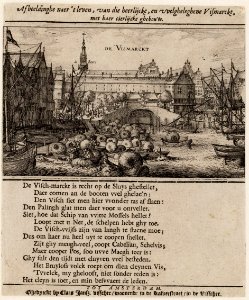 Afbeeldinghe naer 't leven, van die heerlijcke, en welgheleghene Vismarckt,
met haer cierlijcke ghebou'n.
DE VISMARCKT
De Visch-marckt is recht op de Sluys ghestelt,
Daer comen an de booten vvel ghelae'n;
Den Visch siet men hier vvonder ras af slaen:
Den Palingh glat men daer voor u ontvellet.
Siet, hoe dat Schip van vvitte Mossels hellet?
Loopt met u Net, de schelpen hebt ghy toe.
De Visch-vvijfs zijn van langh te staene moe;
Dus om haer nu heel uyt te coopen snellet.
Zijt ghy maegh-reel, coopt Cabeliau, Schelvis;
Maer coopet Pos, soo uvve Maegh teer is:
Ghy salt den tijdt met cluyven vvel besteden.
Het Bruylofs volck roept om dien cleynen Vis,
'Tvvelck, my ghelooft, niet sonder reden is:
Het cleyn is soet, en mils behoeven vvy leden.
TOT AMSTERDAM
Ghedruckt by Claes Jansz. Visscher, woonende in de Kalverstraet in de Visscher.